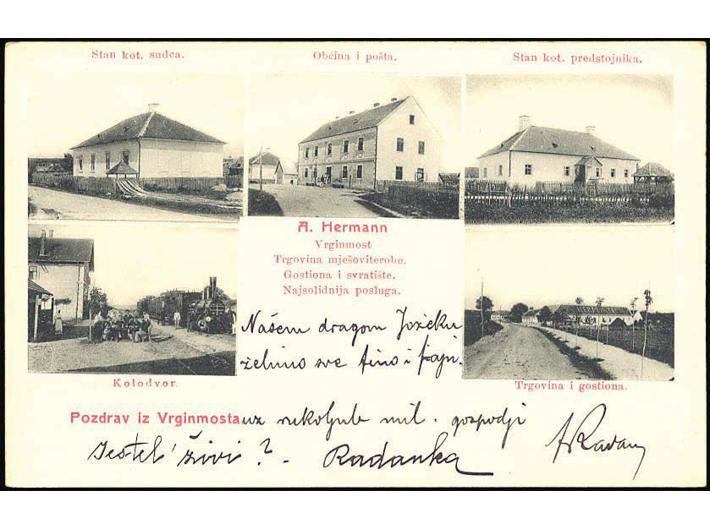 Stan kot. sudca.
Občina i pošta.
Stan kot. predstojnika.
A. Hermann
Vrginmost
Trgovina mješoviterobe.
Gostiona i svratište.
Najsolidnija posluga.
Kolodvor.
Trgovina i gostiona.
Našem dragom Jožeku
želimo sve fino i fajn.
Pozdrav iz Vrginmosta uz rukoljub mil. gospodji
Jestel' živi? - Radanka